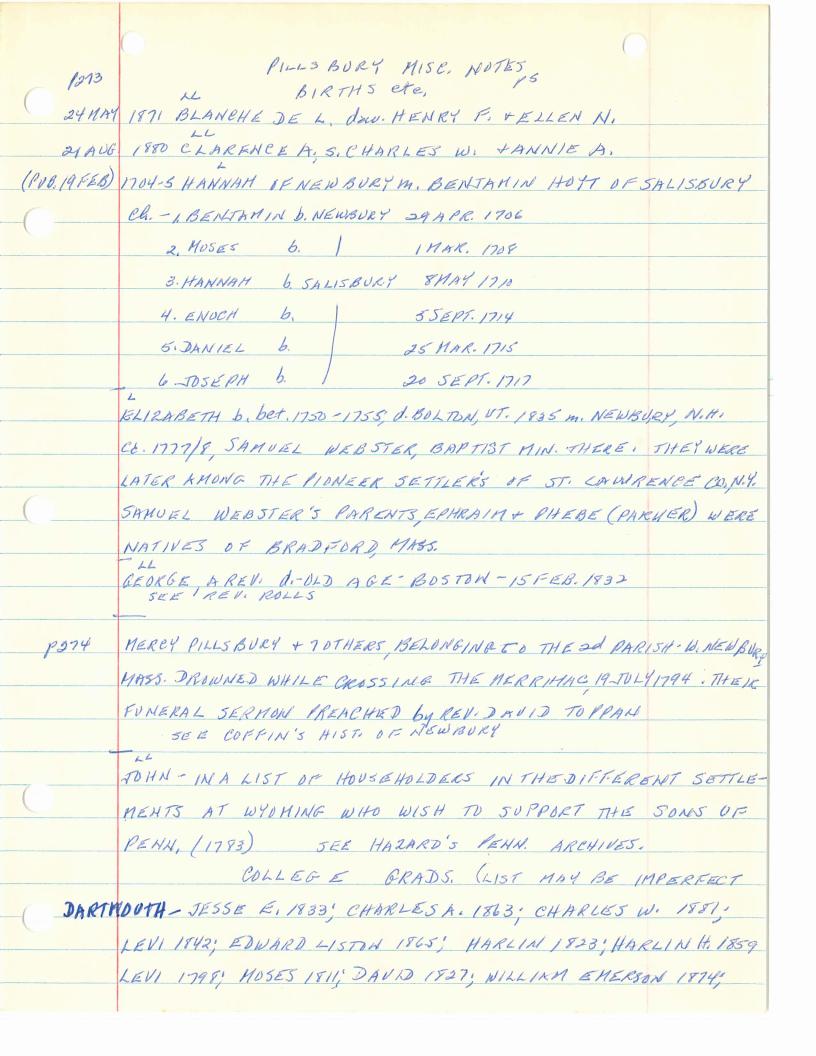 PILLSBURY MISC. NOTES p5
p273 BIRTHS etc.
LL
24 MAY 1871 BLANCHE DE L. dau. HENRY F. + ELLEN N.
LL
21 AUG 1880 CLARENCE A., S. CHARLES W. + ANNIE A.
L
(PUB. 19 FEB) 1704-5 HANNAH OF NEWBURY m. BENJAMIN HOYT OF SALISBURY
Ch. - 1. BENJAMIN b. NEWBURY 29 APR. 1706
2. MOSES b. | 1 MAR. 1708
3. HANNAH b. SALISBURY 8 MAY 1710
4. ENOCH b. 5 SEPT. 1714
5. DANIEL b. 25 MAR. 1715
6 JOSEPH b. 20 SEPT. 1717
L
ELIZABETH b. bet. 1750-1755, d. BOLTON, VT. 1835 m. NEWBURY, N.H.
Ct. 1777/8, SAMUEL WEBSTER, BAPTIST MIN. THERE. THEY WERE
LATER AMONG THE PIONEER SETTLER'S OF ST. LAWRENCE CO, N.Y.
SAMUEL WEBSTER'S PARENTS, EPHRAIM + PHEBE (PARKER) WERE
NATIVES OF BRADFORD, MASS.
LL
GEORGE, A REV. d.-OLD AGE - BOSTON - 15 FEB. 1832
SEE REV. ROLLS
p274 MERCY PILLSBURY + 7 OTHERS, BELONGING TO THE 2d PARISH - W. NEWBURY
MASS. DROWNED WHILE CROSSING THE MERRIMAC, 19 JULY 1794. THEIR
FUNERAL SERMON PREACHED by REV. DAVID TOPPAN
SEE COFFIN'S HIST. OF NEWBURY
LL
JOHN - IN A LIST OF HOUSEHOLDERS IN THE DIFFERENT SETTLE-
MENTS AT WYOMING WHO WISH TO SUPPORT THE SONS OF
PENN, (1783) SEE HAZARD'S PENN. ARCHIVES.
COLLEGE GRADS. (LIST MAY BE IMPERFECT
DARTMOUTH - JESSE E. 1833; CHARLES A. 1863; CHARLES W. 1881;
LEVI 1842; EDWARD LISTON 1865; HARLIN 1823; HARLIN H. 1859
LEVI 1798; MOSES 1811; DAVID 1827; WILLIAM EMERSON 1874;